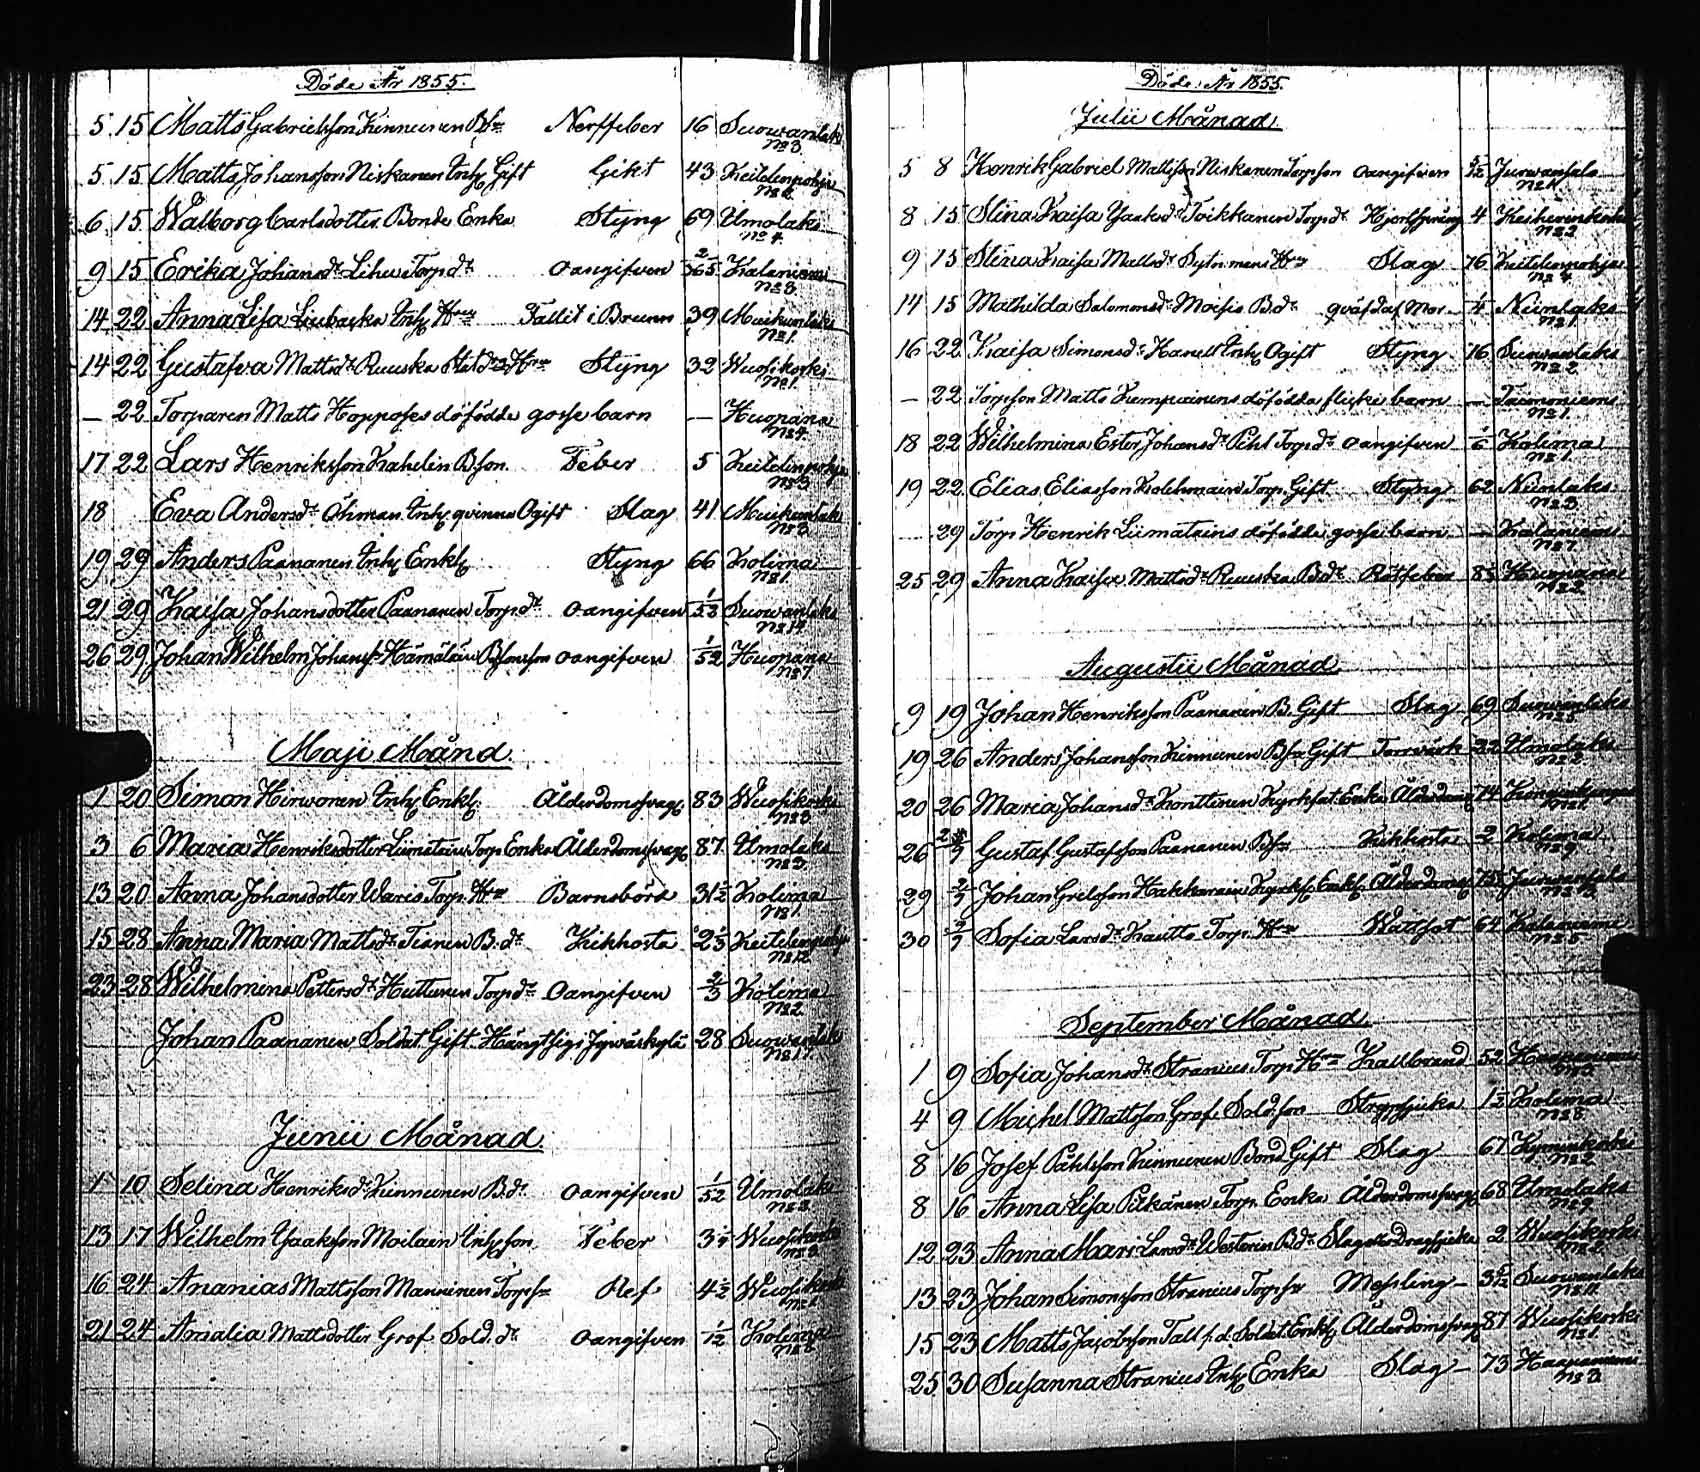 Döde År 1855.
5 15 Matts Gabrielsson Kinnunen Bson Nerffeber 16 Suowanlaks
No 3
5 15 Matts Johansson Niskanen Inh. Gift Gikt 43 Keitelenpohja
5 15 Walborg Carlsdotter Bonde Enka Styng 69 Umolaks
No 4
9 15 Erika Johansdr Lihu Torp.dr oangifven 2/365 Kalaniemi
No 3
14 22 Anna Lisa Liubaska Inh. Hru Fallit i Brunn 39 Muikunlaks
No 1
14 22 Gustafva Mattsdr Ruuska Hru Styng 32 Wuosikoski
No 1
— 22 Torparen Matts Hopposes döfödda gosse barn — Huopana
No 4
17 22 Lars Henriksson Kahelin Bson. Feber 5 Keitelenpohja
No 3
18 Eva Andersdr Öhman Inh. qvinna Ogift Slag 41 Muikunlaks
No 3
19 29 Anders Paananen Inh. Enkl. Styng 66 Kolima
No 1
21 29 Kaisa Johansdotter Paananen Torp.dr oangifven 1/52 Suowanlaks
No 14
26 29 Johan Wilhelm Johanss. Hämäläin Bsonson oangifven 1/52 Huopana
No 7
Maji Månd.
1 20 Simon Hirwonen Inh. Enkl. Ålderdomssvagh. 83 Wuosikoski
No 3
3 6 Maria Henriksdotter Liimatain Torp. Enka Ålderdomssvagh. 87 Umolaks
No 3
13 20 Anna Johansdotter Waris Torp. Hru Barnsbörd 31½ Kolima
No 1
15 28 Anna Maria Mattsdr Tianen B.dr Kikhosta 2⅓ Keitelenpohja
No 12
23 28 Wilhelmina Pettersdr Huttunen Torp.dr oangifven 2/3 Kolima
No 2
Johan Paananen Soldat Gift Hängt sig i Jywäskylä 28 Suowanlaks
No 17
Junii Månad.
1 10 Selina Henriksdr Kinnunen B.dr oangifven 1/52 Umolaks
13 17 Wilhelm Yaaksson Moilaen Inh. son Feber 3 Wuosikoski
16 24 Ananias Mattsson Manninen Torp.son Ref 4½ Wuosikoski
No 1
21 24 Amalia Mattsdotter Grof Sold. dr oangifven 1/12 Kolima
No 8
Döde År 1855.
Julii Månad.
5 8 Henrik Gabriel Mattsson Niskanen Torpson oangifven 5/12 Jurwansalo
8 15 Stina Kaisa Yaaksdr Toikkanen Torp.dr 4
No 2
9 15 Stina Kaisa Mattsdr Hru Slag 76 Keitelenpohja
No 4
14 15 Mathilda Salomonsdr Moisio B.dr qväfd af Mor Niinilaks
No 1
16 22 Kaisa Simonsdr Kanell Inh. Ogift Styng 16 Suowanlaks
No 2
— 22 Torpson Matts Kumpulainens döfödda flicke barn —
No 1
18 22 Wilhelmina Ester Johansdr Pihl Torp.dr oangifven 1/6 Kolima
No 1
19 22 Elias Eliasson Kolehmain Torp. Gift Styng 62 Niinilaks
No 3
— 29 Torp. Henrik Liimatains döfödda gosse barn — Kalaniemi
No 7
25 29 Anna Kaisa Mattsdr Ruuska B.dr Rötfeber Huopana
No 2
Augustii Månad.
9 19 Johan Henriksson Paananen B. Gift Slag 69 Suowanlaks
No 5
19 26 Anders Johansson Kinnunen Bson Gift Torrvärk 22 Umolaks
No 2
20 26 Maria Johansdr Konttinen Kyrkfat. Enka Ålderdom 74 Kongin
No 1
26 Gustaf Gustafsson Paananen Bson Kikhosta 2 Kolima
No 9
29 2/9 Johan Grelsson Hakkarain Kyrkf. Enkl. Ålderdom Jurwansalo
30 2/9 Sofia Larsdr Kautto Torp. Hru Wattsot 64 Kalaniemi
No 5
September Månad.
1 9 Sofia Johansdr Stranius Torp. Hru Kallbrand 52
4 9 Michel Mattsson Grof Sold. son Strypsjuka 1½ Kolima
No 8
8 16 Josef Påhlsson Kinnunen Bond. Gift Slag 67
No 2
8 16 Anna Lisa Pitkänen Torp. Enka Ålderdomssvagh 68 Umolaks
No 9
12 23 Anna Mari Larsdr Westerin B.dr Slag eller Dragsjuka 2 Wuosikoski
13 23 Johan Simonsson Stranius Torp.son Messling Suowanlaks
No 11
15 23 Matts Jacobsson Tall f.d. Soldat Enkl. Ålderdomssvagh 87 Wuosikoski
No 1
25 30 Susanna Stranius Inh. Enka Slag 73 Haapaniemi
No 3